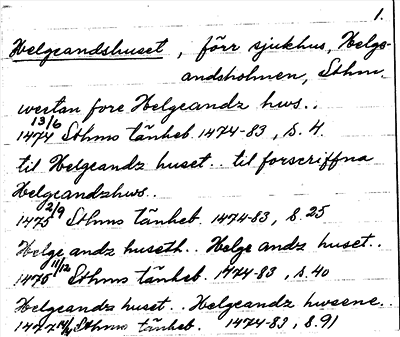 1.
Helgeandshuset, förr sjukhus, Helge-
andsholmen, Sthm.
westan fore Helgeandz hws..
1474 13/6 Sthms tänkeb. 1474-83, s. 4.
til Helgeandz huset.. til forscriffna
Helgeandzhws..
1475 2/9 Sthms tänkeb. 1474-83, s. 25
Helge andz huseth.. Helge andz huset..
1475 11/12 Sthms tänkeb. 1474-83, s. 40
Helgeandz huset.. Helgeandz hwsene..
Sthms tänkeb. 1474-83, s. 91